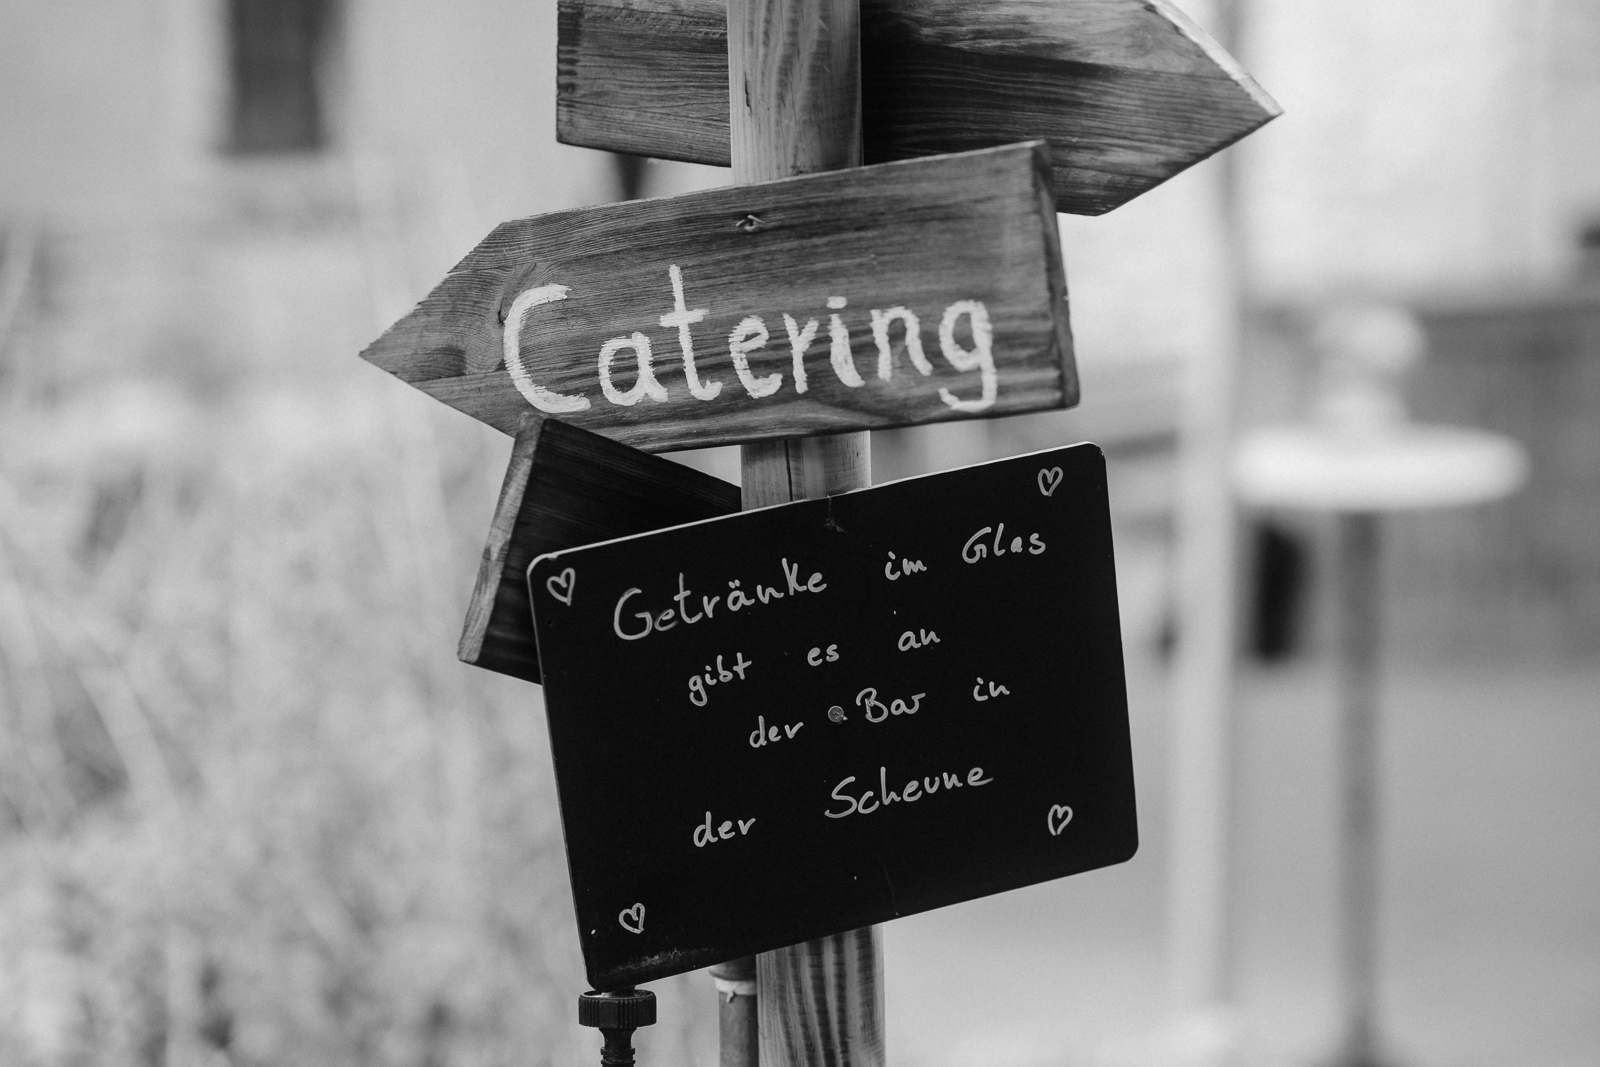 Catering
Getränke im Glas
gibt es an
der Bar in
der Scheune